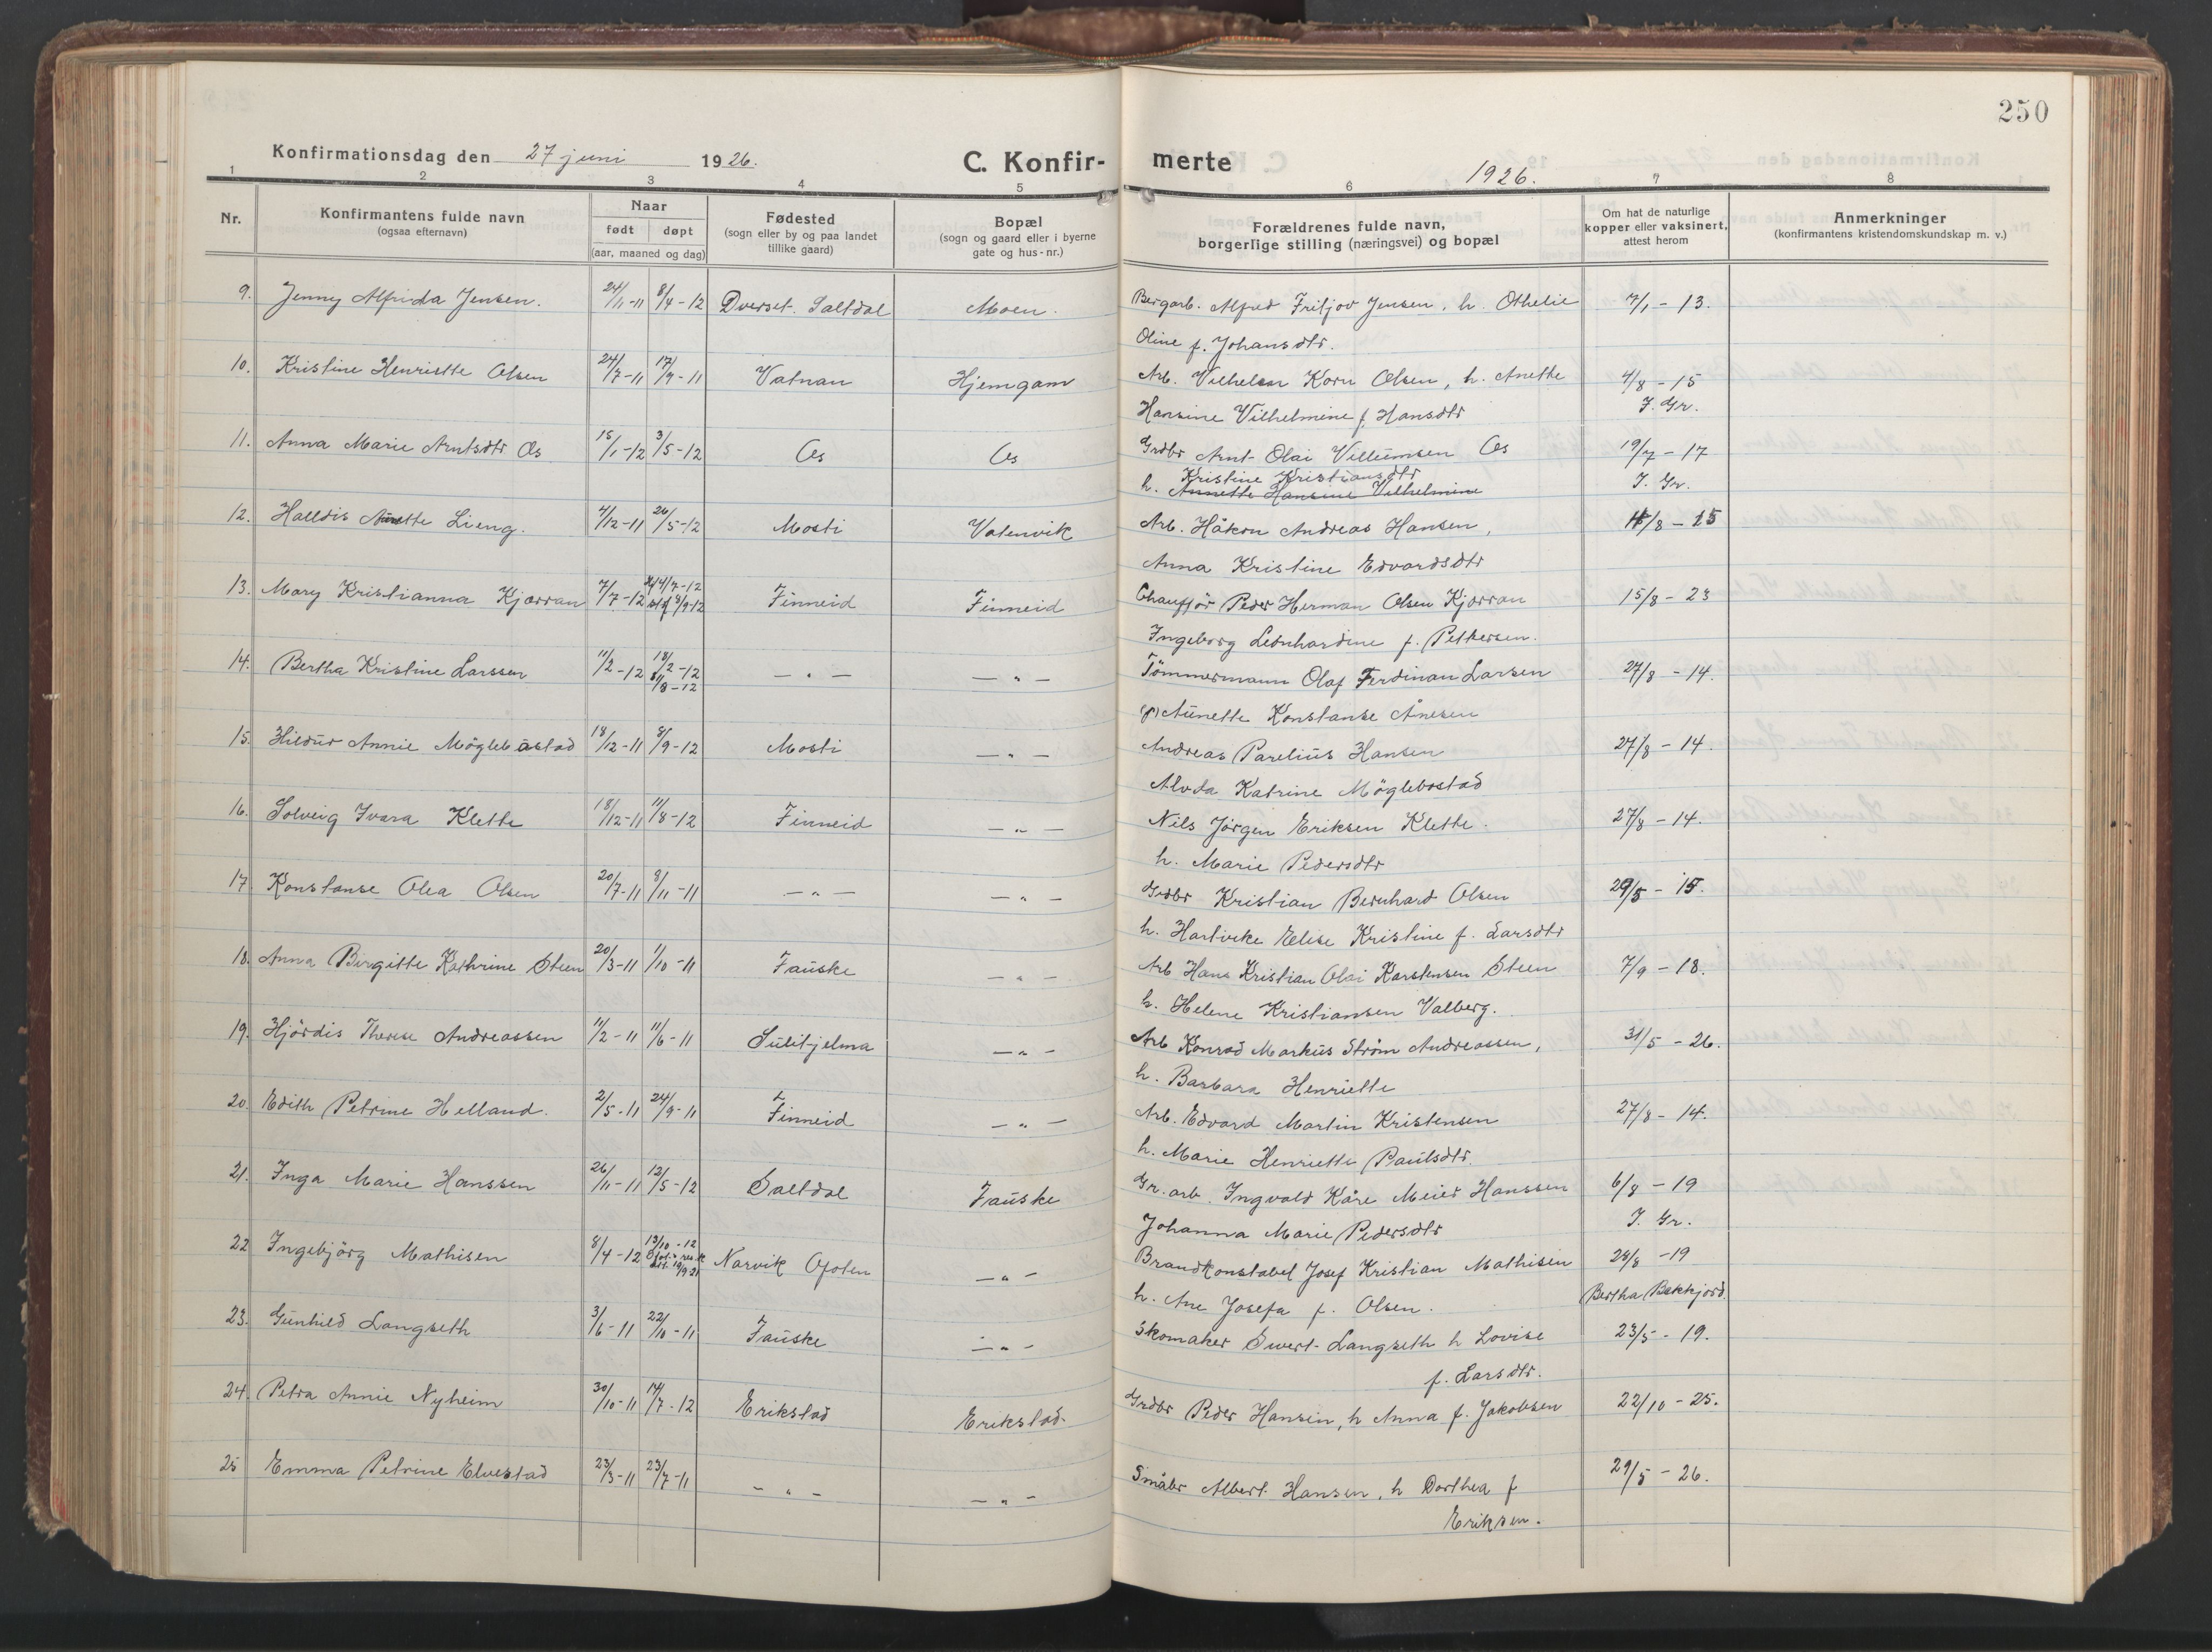 250
Konfirmationsdag den 27 juni 1926.
C. Konfir- merte
1926.
1 2 3 4 5 6 7 8
Nr.
Konfirmantens fulde navn
(ogsaa efternavn)
Naar
født døpt
(aar, maaned og dag)
Fødested
(sogn eller by og paa landet
tillike gaard)
Bopæl
(sogn og gaard eller i byerne
gate og hus-nr.)
Forældrenes fulde navn,
borgerlige stilling (næringsvei) og bopæl
Om hat de naturlige
kopper eller vaksinert,
attest herom
Anmerkninger
(konfirmantens kristendomskundskap m. v.)
9. Jenny Alfrida Jensen. 24/11-11 8/4-12 Dverset. Saltdal Moen. Bergarb. Alfred Fritjov Jensen, h. Othelie 7/1-13.
Oline f. Johansdtr.
10. Kristine Henriette Olsen 24/7-11 17/9-11 Vatnan Hjemgam Arb. Vilhelm Korn Olsen, h. Anette 4/8-15
Hansine Vilhelmine f. Hansdtr J. Gr.
11. Anna Marie Arntsdtr Øs 15/1-12 3/5-12 Øs Øs Grdbr Arnt Olai Villumsen Øs 19/7-17
Kristine Kristiansdtr
h. Annette Hansine Vilhelmine J. Gr.
12. Halldis Anette Lieng. 4/12-11 26/5-12 Mosti Vatenvik Arb. Håkon Andreas Hansen, 11/8-25
Anna Kristine Edvardsdtr
13. Mary Kristianna Kjærran 7/7-12 14/7-12 Finneid Finneid Chauffør Peder Herman Olsen Kjærran 15/8-23
st.f 8/9-12
Ingeborg Leonhardine f. Pettersen.
14. Bertha Kristine Larssen 11/2-12 18/2-12 — " — — " — Tömmermann Olaf Ferdinan Larsen 27/8-14.
11/8-12
(f) Aünette Konstanse Ånesen
15. Hildur Annie Möglebustad 18/12-11 8/9-12 Mosti — " — Andreas Parelius Hansen 27/8-14.
Alvda Katrine Möglebostad
16. Solveig Ivara Klette 18/12-11 11/8-12 Finneid — " — Nils Jörgen Eriksen Klette. 27/8-14.
h. Marie Pedersdtr
17. Konstanse Olea Olsen 20/7-11 8/11-11 — " — — " — Grdbr Kristian Bernhard Olsen 29/5-15.
h. Hartvikke Elise Kristine f. Larsdtr
18. Anna Birgitte Kathrine Steen 20/3-11 1/10-11 Fauske — " — Arb Hans Kristian Olai Karstensen Steen 7/9-18.
h. Helene Kristiansen Valberg.
19. Hjördis Therese Andreassen 11/2-11 11/6-11 Sulitjelma — " — Arb Konrad Markus Ström Andreassen, 31/5-26.
h. Barbara Henriette
20. Edith Petrine Helland. 2/5-11 24/9-11 Finneid — " — Arb. Edvard Martin Kristensen 27/8-14.
h. Marie Henriette Paulsdtr.
21. Inga Marie Hanssen 26/11-11 12/5-12 Saltdal Fauske Gr. arb. Ingvald Kåre Meier Hanssen 6/8-19
Johanna Marie Pedersdtr J. Gr.
22 Ingebjörg Mathisen 8/4-12 13/10-12 Narvik Ofoten — " — Brandkonstabel Josef Kristian Mathisen 28/8-19
h. Ane Josefa f. Olsen. Bertha Bekkjord
23. Gunhild Langseth 3/6-11 22/10-11 Fauske — " — Skomaker Sivert Langseth h Lovise 23/5-19.
f. Larsdtr.
24. Petra Annie Nyheim 30/10-11 14/7-12 Erikstad Erikstad. Grdbr Peder Hansen, h Anna f. Jakobsen 22/10-25.
25 Emma Petrine Elvestad 23/3-11 23/7-11 — " — — " — Småbr Albert Hansen, h Dorthea f 29/5-26.
Eriksen.